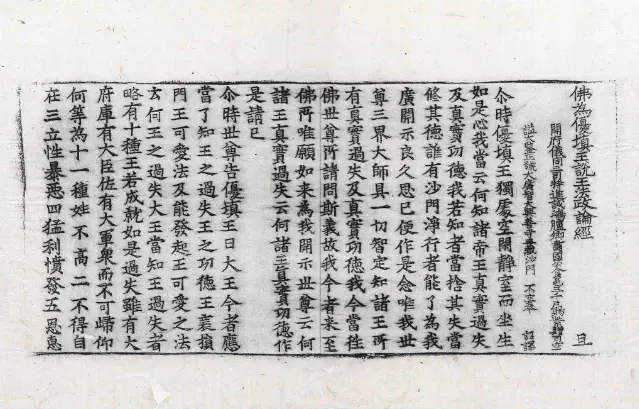 佛為優填王說王法政論經 旦
開府儀同三司特進試鴻臚卿肅國公食邑三千戶賜紫贈司空
謚大鑒正號大廣智大興善寺三藏沙門 不空奉 詔譯
尒時優填王獨處空閑靜室而坐生
如是心我當云何知諸帝王真實過失
及真實功德我若知者當捨其失當
修其德誰有沙門淨行者能了為我
廣開示良久思已便作是念唯我世
尊三界大師具一切智定知諸王所
有真實過失及真實功德我今當往
佛世尊所請問斯義故我今者来至
佛所唯願如来為我開示世尊云何
諸王真實過失云何諸王真實功德作
是請已
尒時世尊告優填王曰大王今者應
當了知王之過失王之功德王衰損
門王可愛法及能發起王可愛之法
云何王之過失大王當知王過失者
略有十種王若成就如是過失雖有大
府庫有大臣佐有大軍衆而不可歸仰
何等為十一種姓不高二不得自
在三立性暴惡四猛利憤發五恩惠